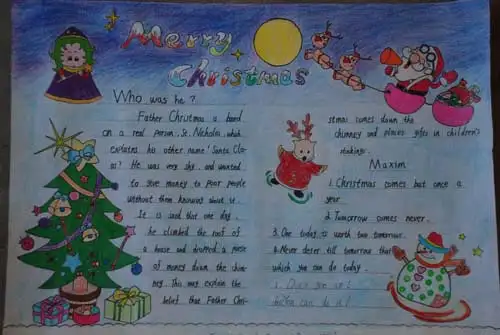 Merry
Christmas
Who was he?
Father Christmas is based
on a real person, St. Nicholas, which
explains his other name 'Santa Cla-
us'? He was very shy, and wanted
to give money to poor people
without them knowing about it.
It is said that one day,
he climbed the roof of
a house and dropped a purse
of money down the chim-
ney. This may explain the
belief that Father Chri-
stmas comes down the
chimney and places gifts in children's
stockings.
Maxim
1. Christmas comes but once a
year
2. Tomorrow comes never.
3. One today is worth two tomorrows.
4. Never deter till tomorrow that
which you can do today.